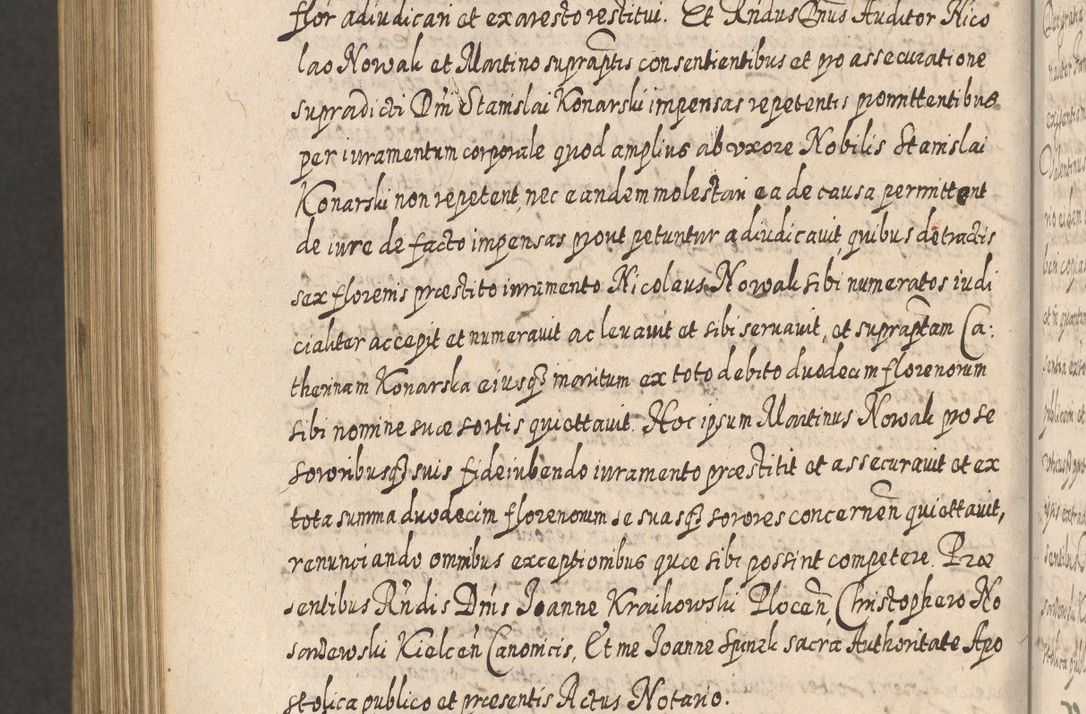 flor adiudicari et ex aresto restitui. Et Rndus Dnus Auditor Nico
lao Nowak et Martino supraptis consentientibus et pro assecuratione
supradicti Dni Stanislai Konarski impensas repetentis promittentibus
per iuramentum corporale quod amplius ab vxore Nobilis Stanislai
Konarski non repetent, nec eandem molestari ea de causa permittent
de iure de facto impensas prout petuntur adiudicauit quibus detractis
sex florenis præstito iuramento Nicolaus Nowak sibi numeratos iudi
cialiter accepit et numerauit ac leuauit et sibi seruauit, et supraptam Ca:
therinam Konarska eiusq3 maritum ex toto debito duodecim florenorum
sibi nomine suæ sortis quiettauit. Hoc ipsum Martinus Nowak pro se
sororibusq3 suis fideiubendo iuramento præstitit et assecurauit et ex
tota summa duodecim florenorum se suasq3 sorores concernen quiettauit,
renunciando omnibus exceptionibus quæ sibi possint competere. Præ
sentibus Rndis Dnis Joanne Kraikowski Plocen Christophero No
sordewski Kielcen Canonicis, Et me Joanne Spinek sacra Authoritate Apo
stolica publico et præsentis Actus Notario.